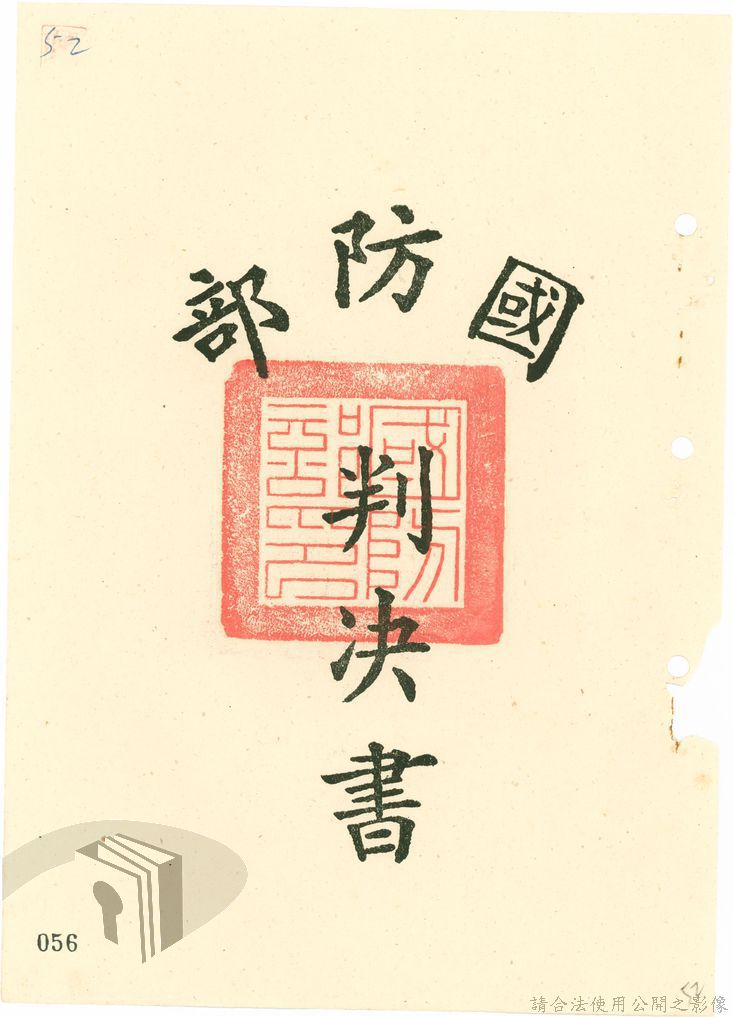 52
國防部
國防部印
判決書
056
52
請合法使用公開之影像